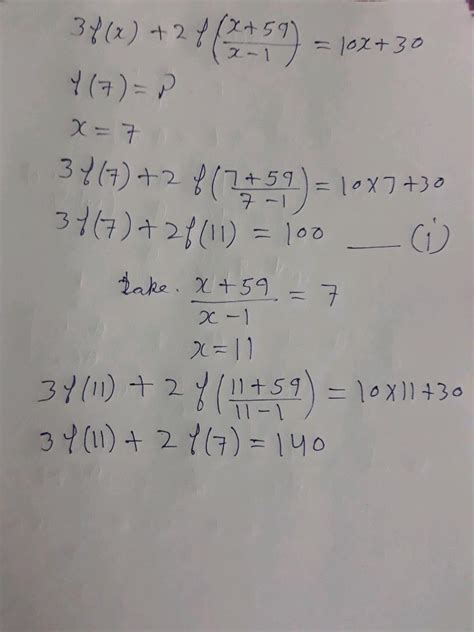 3f(x) + 2f((x+59)/(x-1)) = 10x+30
f(7) = P
x = 7
3f(7) + 2 f((7+59)/(7-1)) = 10x7+30
3f(7) + 2f(11) = 100 ___ (i)
take. (x+59)/(x-1) = 7
x = 11
3f(11) + 2 f((11+59)/(11-1)) = 10x11+30
3f(11) + 2 f(7) = 140